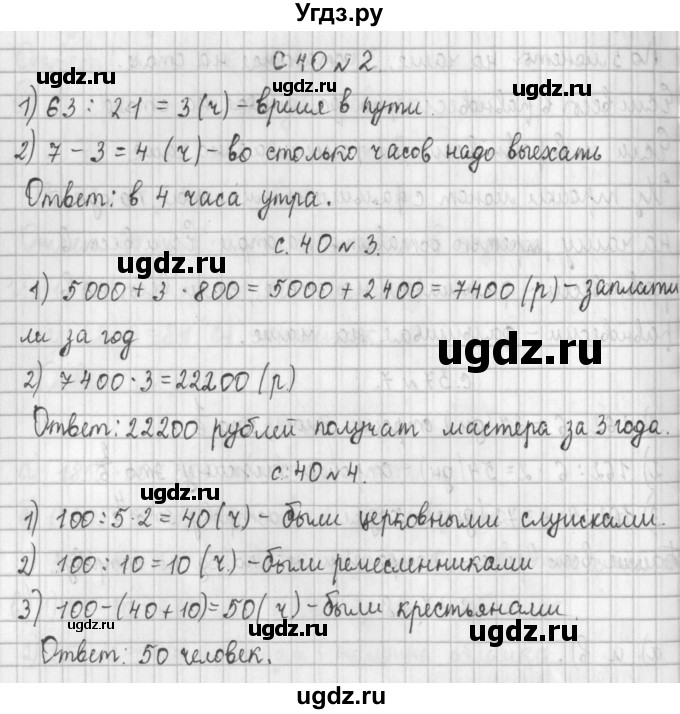 Угдз.ру
с. 40 № 2
1) 63 : 21 = 3 (ч) – время в пути.
2) 7 – 3 = 4 (ч) – во столько часов надо выехать
Ответ: в 4 часа утра.
с. 40 № 3.
1) 5000 + 3 · 800 = 5000 + 2400 = 7400 (р) – заплати
ли за год
2) 7400 · 3 = 22200 (р)
Ответ: 22200 рублей получат мастера за 3 года.
с. 40 № 4.
1) 100 : 5 · 2 = 40 (ч) – были церковными служками.
2) 100 : 10 = 10 (ч) – были ремесленниками
3) 100 – (40 + 10) = 50 (ч) – были крестьянами.
Ответ: 50 человек.
ugdz.ru
ugdz.ru
ugdz.ru
ugdz.ru
ugdz.ru
ugdz.ru
ugdz.ru
ugdz.ru
ugdz.ru
ugdz.ru
ugdz.ru
ugdz.ru